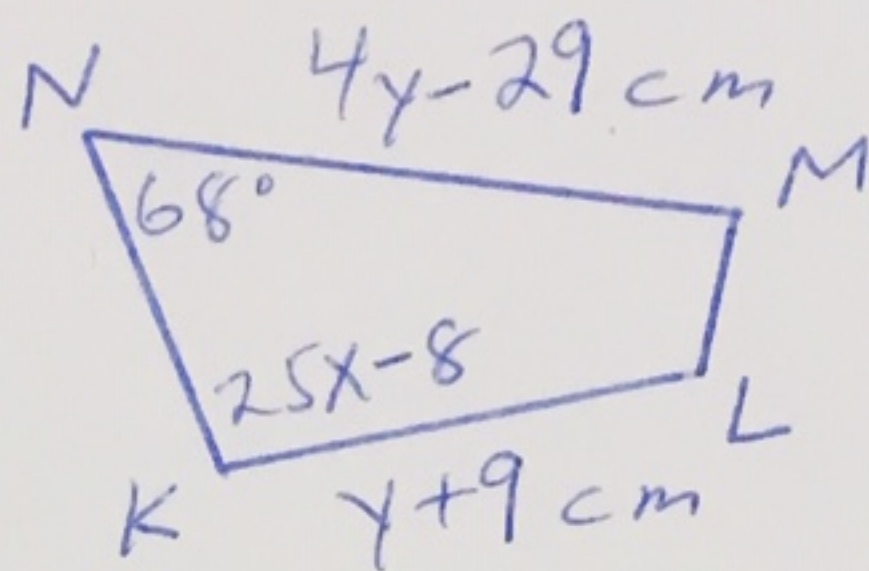 N
4y-29 cm
M
68°
25x-8
L
K
y+9 cm